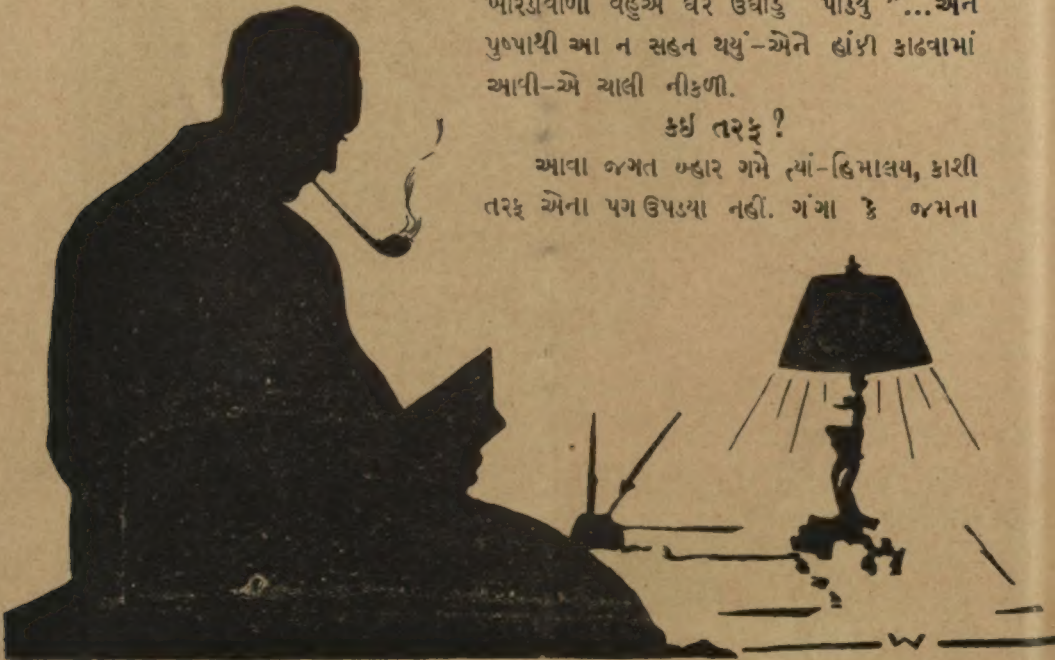 બારડાવાળી વહુએ ઘર ઉઘાડું પાડ્યું "...અને
પુષ્પાથી આ ન સહન થયું–એને હાંકી કાઢવામાં
આવી–એ ચાલી નીકળી.
કઇ તરફ ?
આવા જગત બ્હાર ગમે ત્યાં–હિમાલય, કાશી
તરફ એના પગ ઉપડયા નહીં. ગંગા કે જમના
W